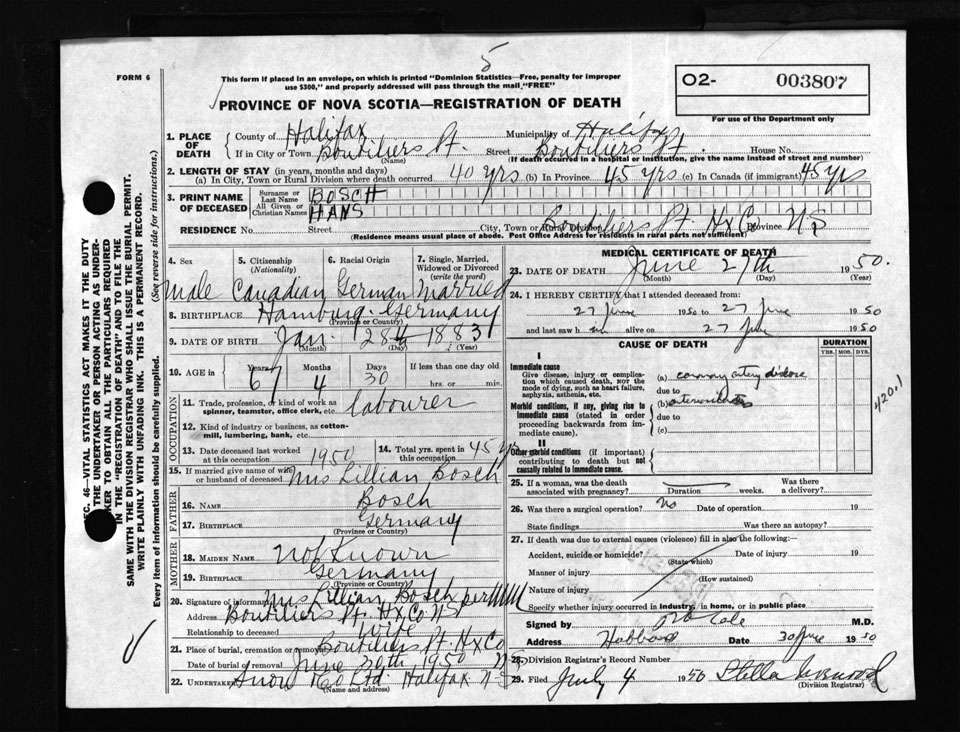 5
FORM 6
This form if placed in an envelope, on which is printed "Dominion Statistics—Free, penalty for improper
use $300," and properly addressed will pass through the mail "FREE"
O2- 003807
PROVINCE OF NOVA SCOTIA—REGISTRATION OF DEATH
For use of the Department only
1. PLACE OF DEATH
County of Halifax Municipality of Halifax
If in City or Town Boutiliers Pt. Street Boutiliers Pt. House No.
(Name) (If death occurred in a hospital or institution, give the name instead of street and number)
2. LENGTH OF STAY (in years, months and days)
(a) In City, Town or Rural Division where death occurred 40 yrs (b) In Province 45 yrs (c) In Canada (if immigrant) 45 yrs
3. PRINT NAME OF DECEASED
Surname or Last Name BOSCH
All Given or Christian Names HANS
RESIDENCE No. Street City, Town or Rural Division Boutiliers Pt. Hx Co Province N S
(Residence means usual place of abode. Post Office Address for residents in rural parts not sufficient)
4. Sex 5. Citizenship (Nationality) 6. Racial Origin 7. Single, Married, Widowed or Divorced (write the word)
Male Canadian German Married
8. BIRTHPLACE Hamburg Germany
(Province or Country)
9. DATE OF BIRTH Jan. 28th 1883
(Month) (Day) (Year)
10. AGE in Years Months Days If less than one day old
67 4 30 hrs. or min.
OCCUPATION
11. Trade, profession, or kind of work as spinner, teamster, office clerk, etc. labourer
12. Kind of industry or business, as cotton-mill, lumbering, bank, etc.
13. Date deceased last worked at this occupation 1950 14. Total yrs. spent in this occupation 45 yrs
15. If married give name of wife or husband of deceased Mrs Lillian Bosch
FATHER
16. NAME Bosch
17. BIRTHPLACE Germany
(Province or Country)
MOTHER
18. MAIDEN NAME Not Known
19. BIRTHPLACE Germany
(Province or Country)
20. Signature of informant Mrs Lillian Bosch per
Address Boutiliers Pt. Hx Co NS
Relationship to deceased Wife
21. Place of burial, cremation or removal Boutiliers Pt. Hx Co
Date of burial or removal June 30th 1950 N S
22. Undertaker Snow & Co Ltd. Halifax N S
(Name and address)
MEDICAL CERTIFICATE OF DEATH
23. DATE OF DEATH June 27th 1950.
(Month) (Day) (Year)
24. I HEREBY CERTIFY that I attended deceased from:
27 June 1950 to 27 June 1950
and last saw h im alive on 27 June 1950
CAUSE OF DEATH DURATION
YRS. MOS. DYS.
I
Immediate cause
Give disease, injury or complication which caused death, NOT the mode of dying, such as heart failure, asphyxia, asthenia, etc.
(a) coronary artery disease
due to
Morbid conditions, if any, giving rise to immediate cause (stated in order proceeding backwards from immediate cause).
(b)
due to
(c)
II
Other morbid conditions (if important) contributing to death but not causally related to immediate cause.
4201
25. If a woman, was the death associated with pregnancy? Duration weeks. Was there a delivery?
26. Was there a surgical operation? No Date of operation 19
State findings Was there an autopsy?
27. If death was due to external causes (violence) fill in also the following:
Accident, suicide or homicide? Date of injury 19
(State which)
Manner of injury
(How sustained)
Nature of injury
Specify whether injury occurred in industry, in home, or in public place
Signed by M.D.
Address Date 30 June 1950
28. Division Registrar's Record Number
29. Filed July 4 1950 Stella
(Division Registrar)
SEC. 46—VITAL STATISTICS ACT MAKES IT THE DUTY
OF THE UNDERTAKER OR PERSON ACTING AS UNDER-
TAKER TO OBTAIN ALL THE PARTICULARS REQUIRED
IN THE "REGISTRATION OF DEATH" AND TO FILE THE
SAME WITH THE DIVISION REGISTRAR WHO SHALL ISSUE THE BURIAL PERMIT.
WRITE PLAINLY WITH UNFADING INK. THIS IS A PERMANENT RECORD.
Every item of information should be carefully supplied. (See reverse side for instructions.)